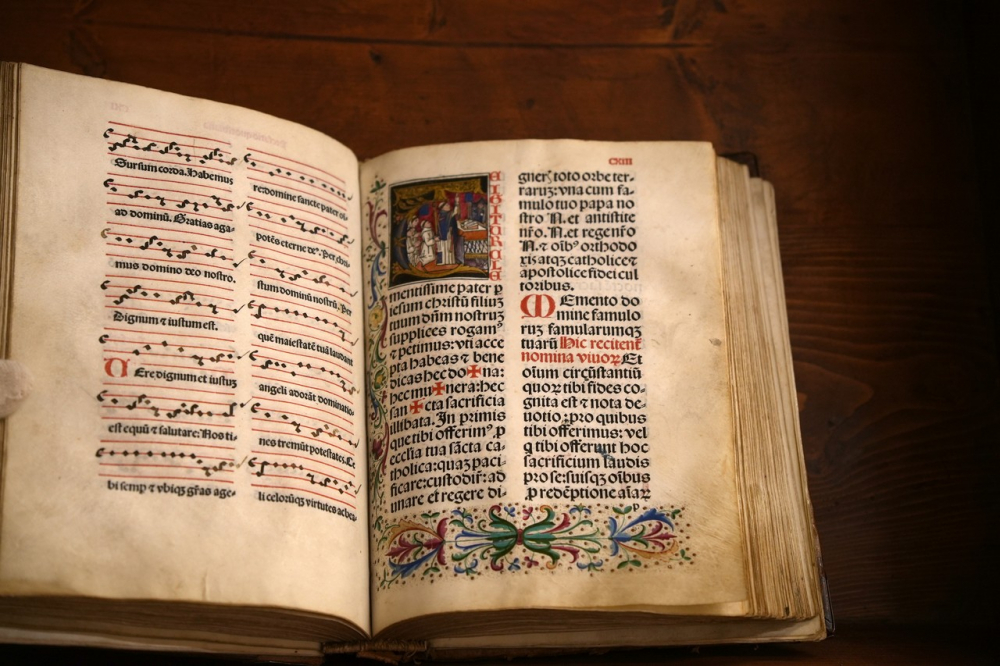 Sursum corda. Habemus
ad dominū. Gratias aga⸗
mus domino deo nostro.
Dignum ⁊ iustum est.
Ere dignum et iustuʒ
est equū ⁊ salutare: Nos ti⸗
bi semp ⁊ vbiqʒ gr̄as age⸗
re: domine sancte pater oī⸗
potēs eterne deꝰ. Per chri⸗
stum dominū nostrū. Per
quē maiestatē tuā laudant
angeli adorāt dominatio⸗
nes tremūt potestates. Ce
li celorūqʒ virtutes ac be⸗
CXIII
E IGITUR CLE
mentissime pater p
iesum christū filiuʒ
tuum dn̄m nostruʒ
supplices rogamꝰ
⁊ petimus: vti acce
pta habeas ⁊ bene
dicas hec do✠na:
hec mu✠nera: hec
san✠cta sacrificia
illibata. In primis
que tibi offerimꝰ p
ecclia tua sācta ca⸗
tholica: quaʒ paci⸗
ficare: custodir̄: ad
unare et regere di⸗
gneř toto orbe ter⸗
raruʒ: vna cum fa⸗
mulo tuo papa no
stro N. et antistite
nr̄o. N. et rege nr̄o
N. ⁊ oībꝰ orthodo
xis atqʒ catholice ⁊
apostolice fidei cul
toribus.
MEmento do
mine famulo
ruʒ famularumqʒ
tuarū Hic recitent̄
nomina viuoꝝ Et
oīum circūstantiū
quoꝝ tibi fides co⸗
gnita est ⁊ nota de⸗
uotio: pro quibus
tibi offerimus: vel
q̄ tibi offerunt hoc
sacrificium laudis
pro se: suisqʒ oībus
p redēptione aīaꝝ